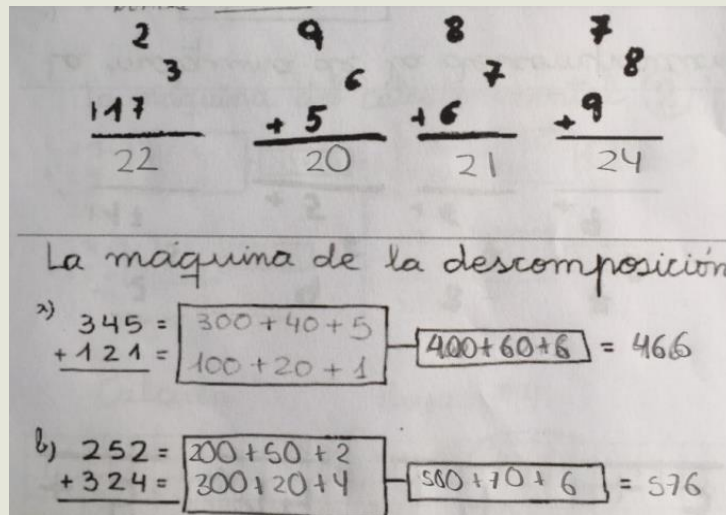 2 9 8 7
3 6 7 8
+17 + 5 + 6 + 9
22 20 21 24
La máquina de la descomposición
a) 345 = 300 + 40 + 5
+ 121 = 100 + 20 + 1 400 + 60 + 6 = 466
b) 252 = 200 + 50 + 2
+ 324 = 300 + 20 + 4 500 + 70 + 6 = 576